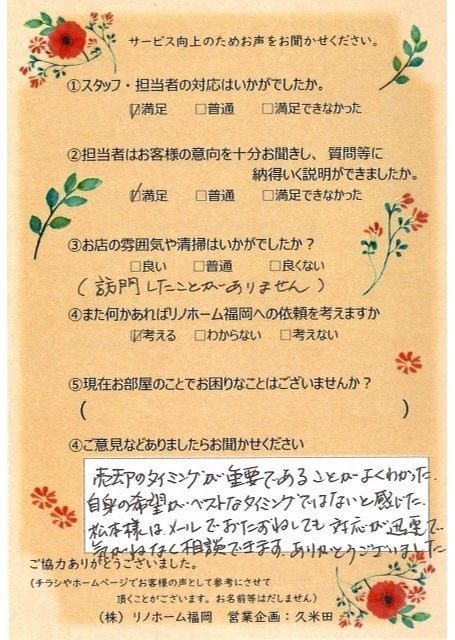 サービス向上のためお声をお聞かせください。
①スタッフ・担当者の対応はいかがでしたか。
☑満足 □普通 □満足できなかった
②担当者はお客様の意向を十分お聞きし、質問等に
納得いく説明ができましたか。
☑満足 □普通 □満足できなかった
③お店の雰囲気や清掃はいかがでしたか？
□良い □普通 □良くない
(訪問したことがありません)
④また何かあればリノホーム福岡への依頼を考えますか
☑考える □わからない □考えない
⑤現在お部屋のことでお困りなことはございませんか？
( )
④ご意見などありましたらお聞かせください
売却のタイミングが重要であることがよくわかった.
自身の希望がベストなタイミングではないと感じた.
松本様は.メールでおたずねしても対応が迅速で
気がねなく相談できます.ありがとうございました
ご協力ありがとうございました。
(チラシやホームページでお客様の声として参考にさせて
頂くことがございます。お名前等はだしません)
(株) リノホーム福岡 営業企画：久米田